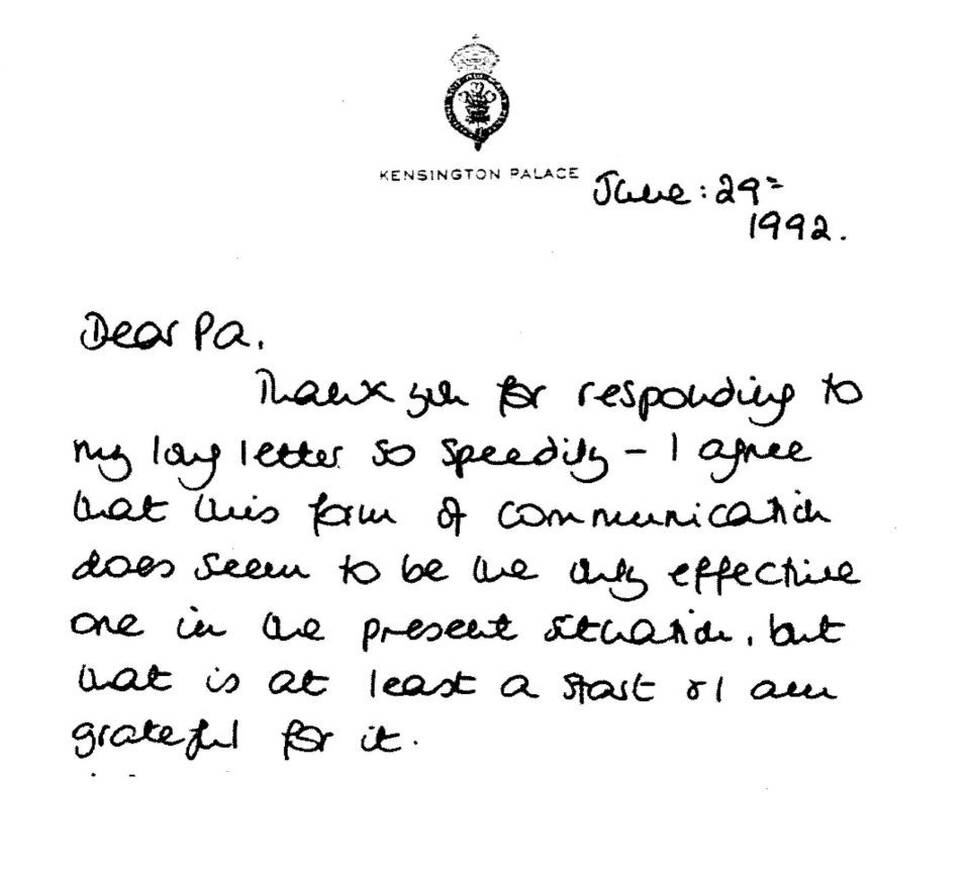 KENSINGTON PALACE
June: 29=
1992.
Dear Pa,
Thank you for responding to
my long letter so speedily - I agree
that this form of communication
does seem to be the only effective
one in the present situation, but
that is at least a start & I am
grateful for it.